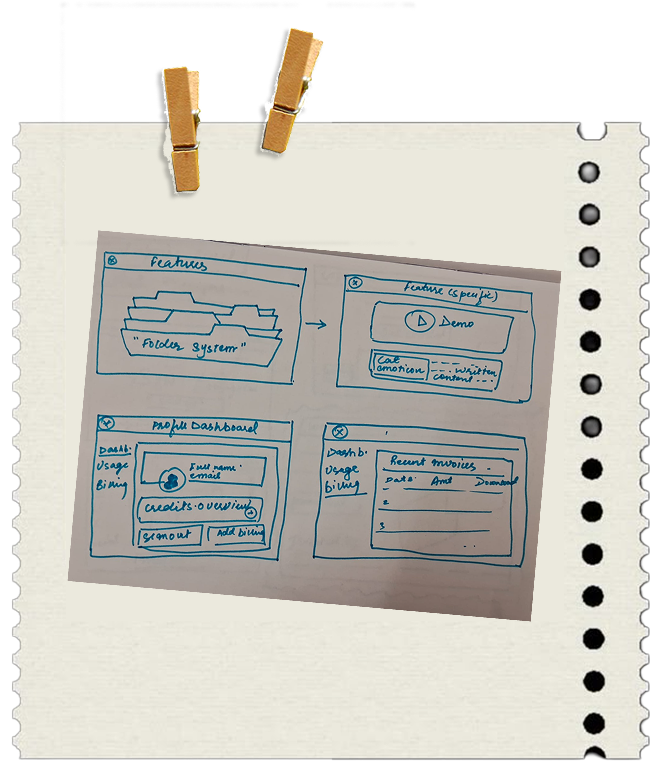 Features
"Folder System"
Feature (specific)
Demo
Cat
emoticon
written
content
Profile Dashboard
Dashb.
Usage
Billing
Full name
email
credits overview
signout
Add billing
Dashb.
Usage
billing
Recent invoices
Date Amt Download
2
3